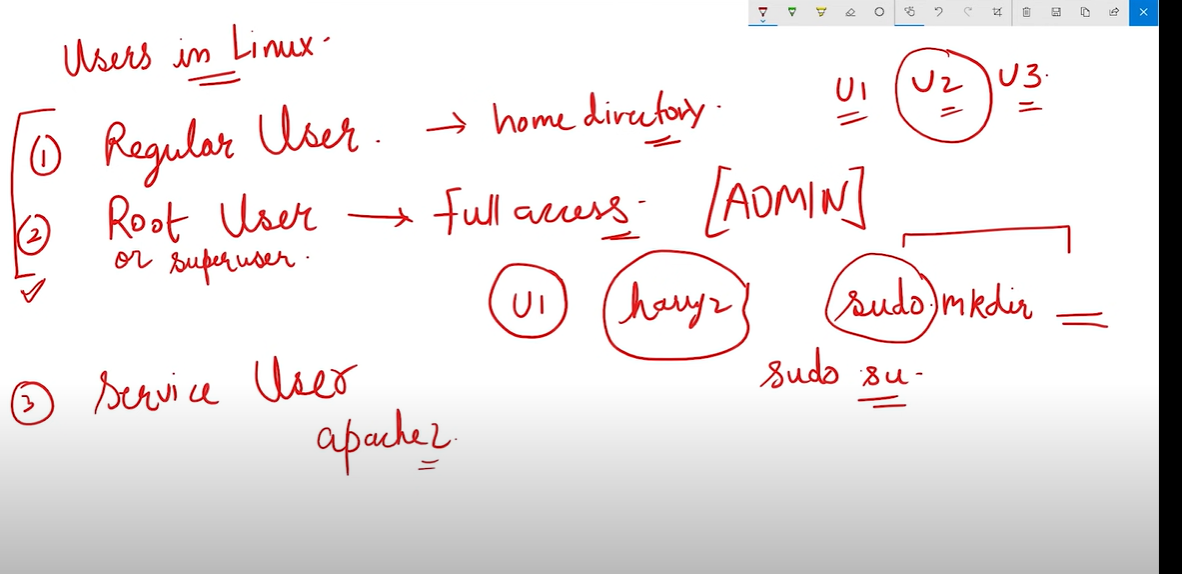 Users in Linux.
U1 U2 U3.
① Regular User. → home directory.
② Root User → full access. [ADMIN]
or superuser.
U1 harry2 sudo mkdir
sudo su -
③ Service User
apache2.